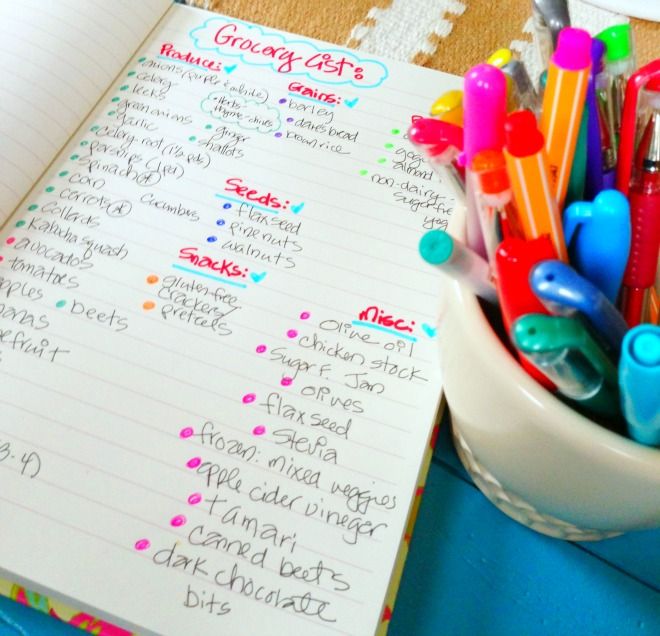 Grocery List:
Produce:
onions (purple & white)
celery
leeks
green onions
garlic
celery root (1½ lbs)
parsnips (1 lb)
Spinach
corn
carrots
collards
Kabucha squash
avocados
tomatoes
beets
Herbs:
thyme, chives
ginger
shallots
cucumbers
Grains:
barley
daves bread
brown rice
almond
non-dairy
sugar fre
yog
Seeds:
flaxseed
pinenuts
walnuts
Snacks:
gluten free
crackers/
pretzels
Misc:
olive oil
chicken stock
Sugar F. Jam
olives
flax seed
Stevia
frozen: mixed veggies
apple cider vineger
tamari
canned beets
dark chocolate
bits